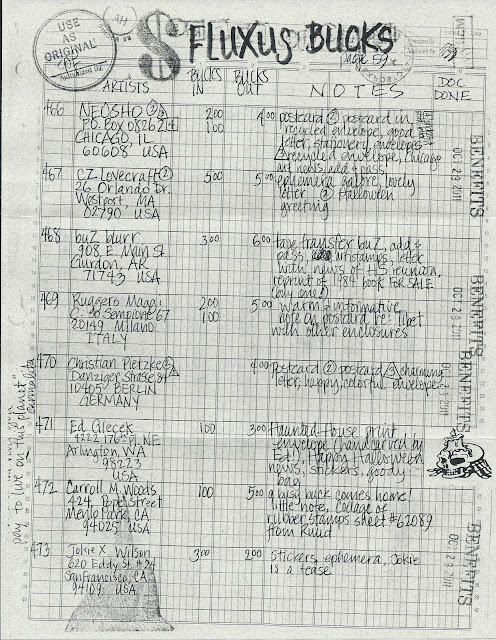 USE
AS
ORIGINAL
AH
$ FLUXUS BUCKS
page 59
ARTISTS
BUCKS IN
BUCKS OUT
NOTES
DOC DONE
466 NEOSHO
P.O. Box 082624
CHICAGO, IL
60608 USA
200
100
400
postcard ② postcard in
recycled envelope, good
letter, stationery, envelopes
recycled envelope, Chicago
art news, add & pass
467 CZ Lovecraft ②
26 Orlando Dr.
Westport, MA
02790 USA
500
500
ephemera galore, lovely
letter ② Halloween
greeting
468 buZ blurr
908 E. Main St.
Gurdon, AR
71743 USA
300
600
tape transfer buZ, add &
pass, artistamps, letter
with news of HS reunion,
reprint of 1984 book FOR SALE
(buy one!)
469 Ruggero Maggi
C. So Sempione 67
20149 Milano
ITALY
200
100
500
warm & informative
note on postcard re: Tibet
with other enclosures
470 Christian Pietzke
Danziger Strasse 84
10405 BERLIN
GERMANY
400
postcard ② postcard ③ charming
letter, happy, colorful envelope
471 Ed Giecek
4222 176th Pl. NE
Arlington, WA
98223
USA
100
300
Haunted House print
envelope (hand carved by
Ed!), Happy Halloween
news, stickers, goody
bag
472 Carroll M. Woods
424 Pope Street
Menlo Park, CA
94025 USA
100
500
a busy buck comes home!
little note, collage of
rubber stamps sheet #62089
from Ruud
473 Jokie X Wilson
620 Eddy St. #24
San Francisco, CA
94109 USA
300
200
Stickers, ephemera, Jokie
is a tease
BENEFITS
OCT 29 2011
BENEFITS
OCT 29 2011
BENEFITS
OCT 29 2011
BENEFITS
OCT 29 2011
BENEFITS
to live on this planet"